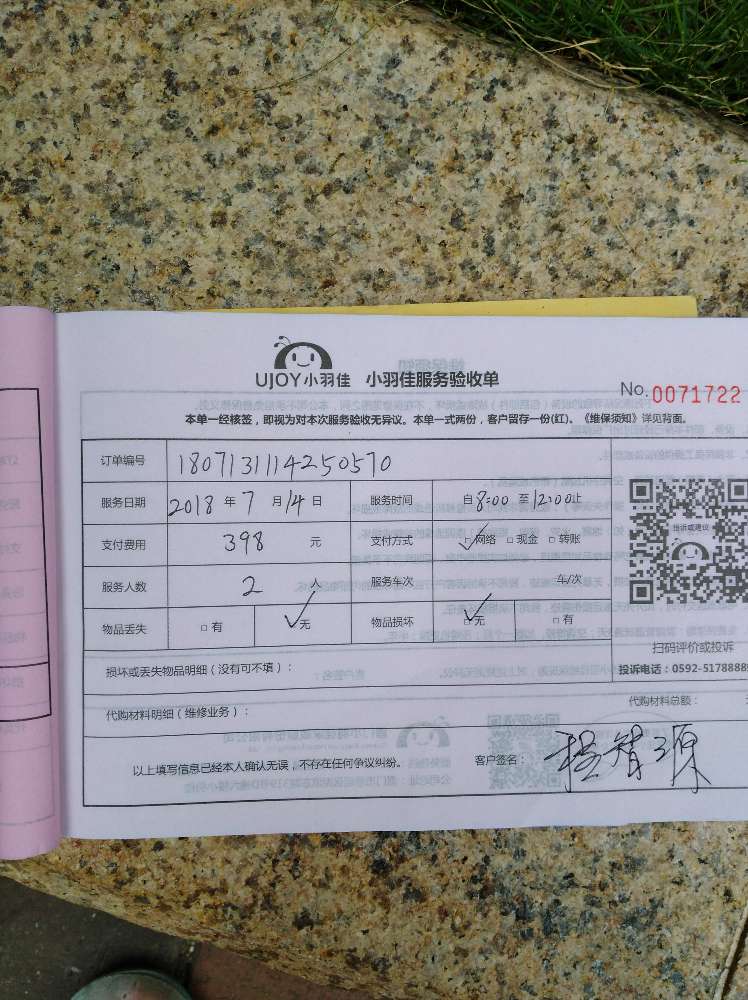 UJOY小羽佳 小羽佳服务验收单
No.0071722
本单一经核签，即视为对本次服务验收无异议。本单一式两份，客户留存一份(红)。《维保须知》详见背面。
订单编号 1807131114250570
服务日期 2018 年 7 月 14 日 服务时间 自 8:00 至 12:00 止
支付费用 398 元 支付方式 ☑网络 □现金 □转账
投诉或建议
服务人数 2 人 服务车次 车/次
物品丢失 □有 ☑无 物品损坏 ☑无 □有
扫码评价或投诉
损坏或丢失物品明细（没有可不填）：
投诉电话：0592-5178888
代购材料明细（维修业务）： 代购材料总额：
以上填写信息已经本人确认无误，不存在任何争议纠纷。 客户签名：